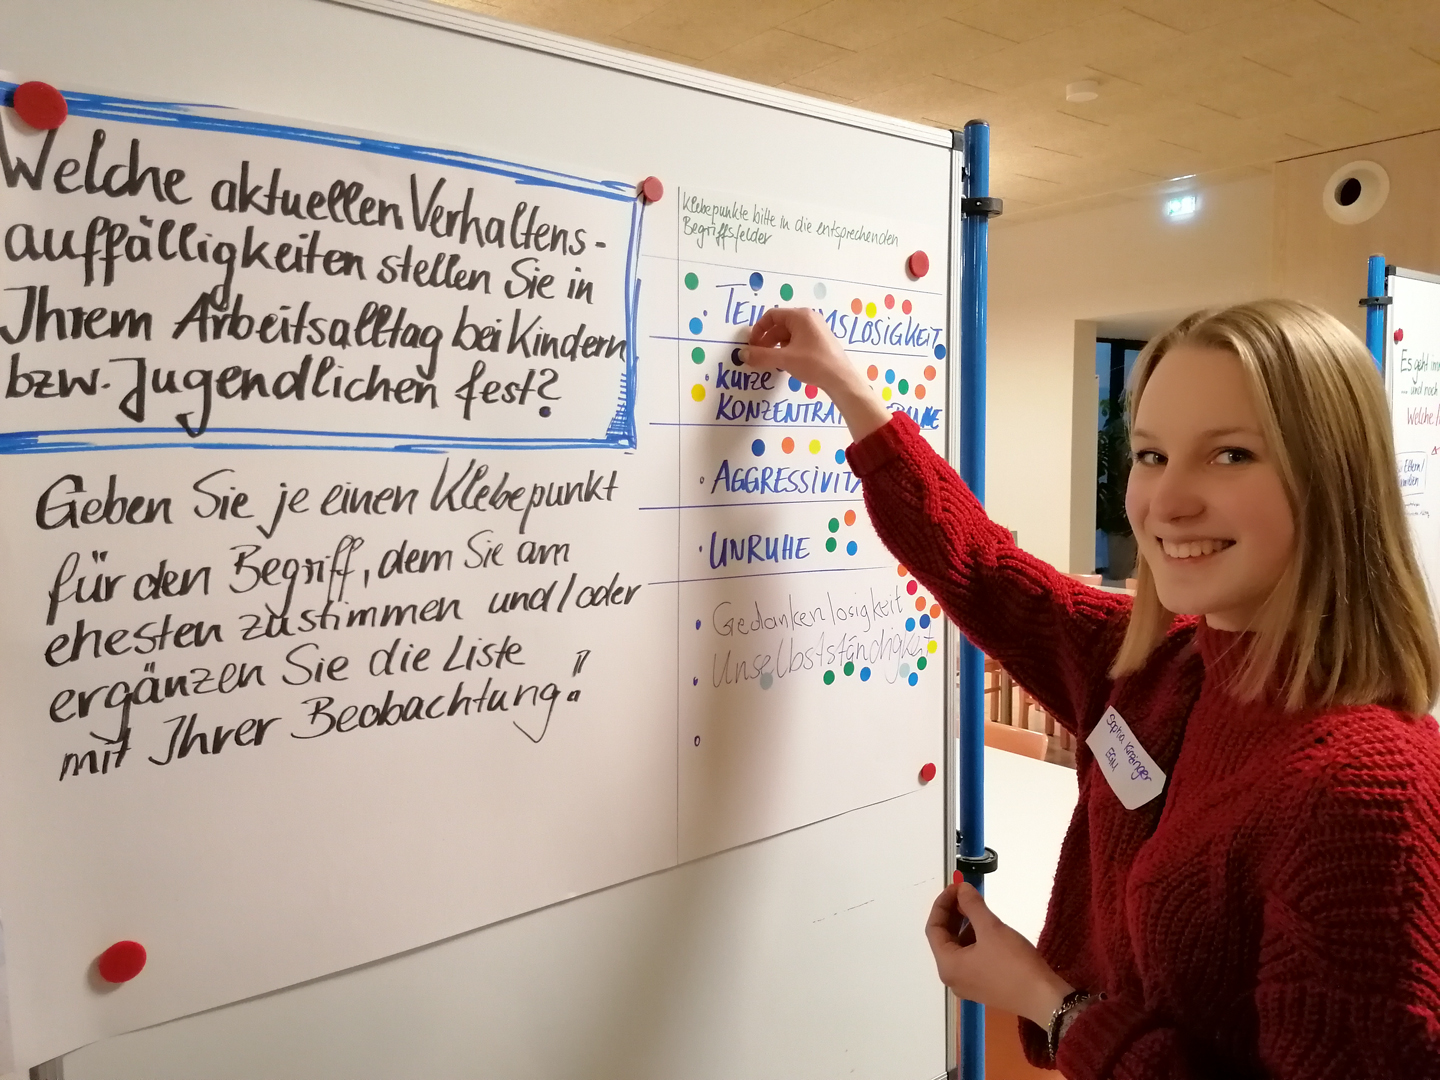 Welche aktuellen Verhaltens-
auffälligkeiten stellen Sie in
Ihrem Arbeitsalltag bei Kindern
bzw. Jugendlichen fest?
Geben Sie je einen Klebepunkt
für den Begriff, dem Sie am
ehesten zustimmen und/oder
ergänzen Sie die Liste
mit Ihrer Beobachtung!
Klebepunkte bitte in die entsprechenden
Begriffsfelder
KURZE
AGGRESSIVITÄ
UNRUHE
Gedankenlosigkeit
Unselbstständigkeit
Sophia
EGM
Es geht
und noch
Welche
Eltern/